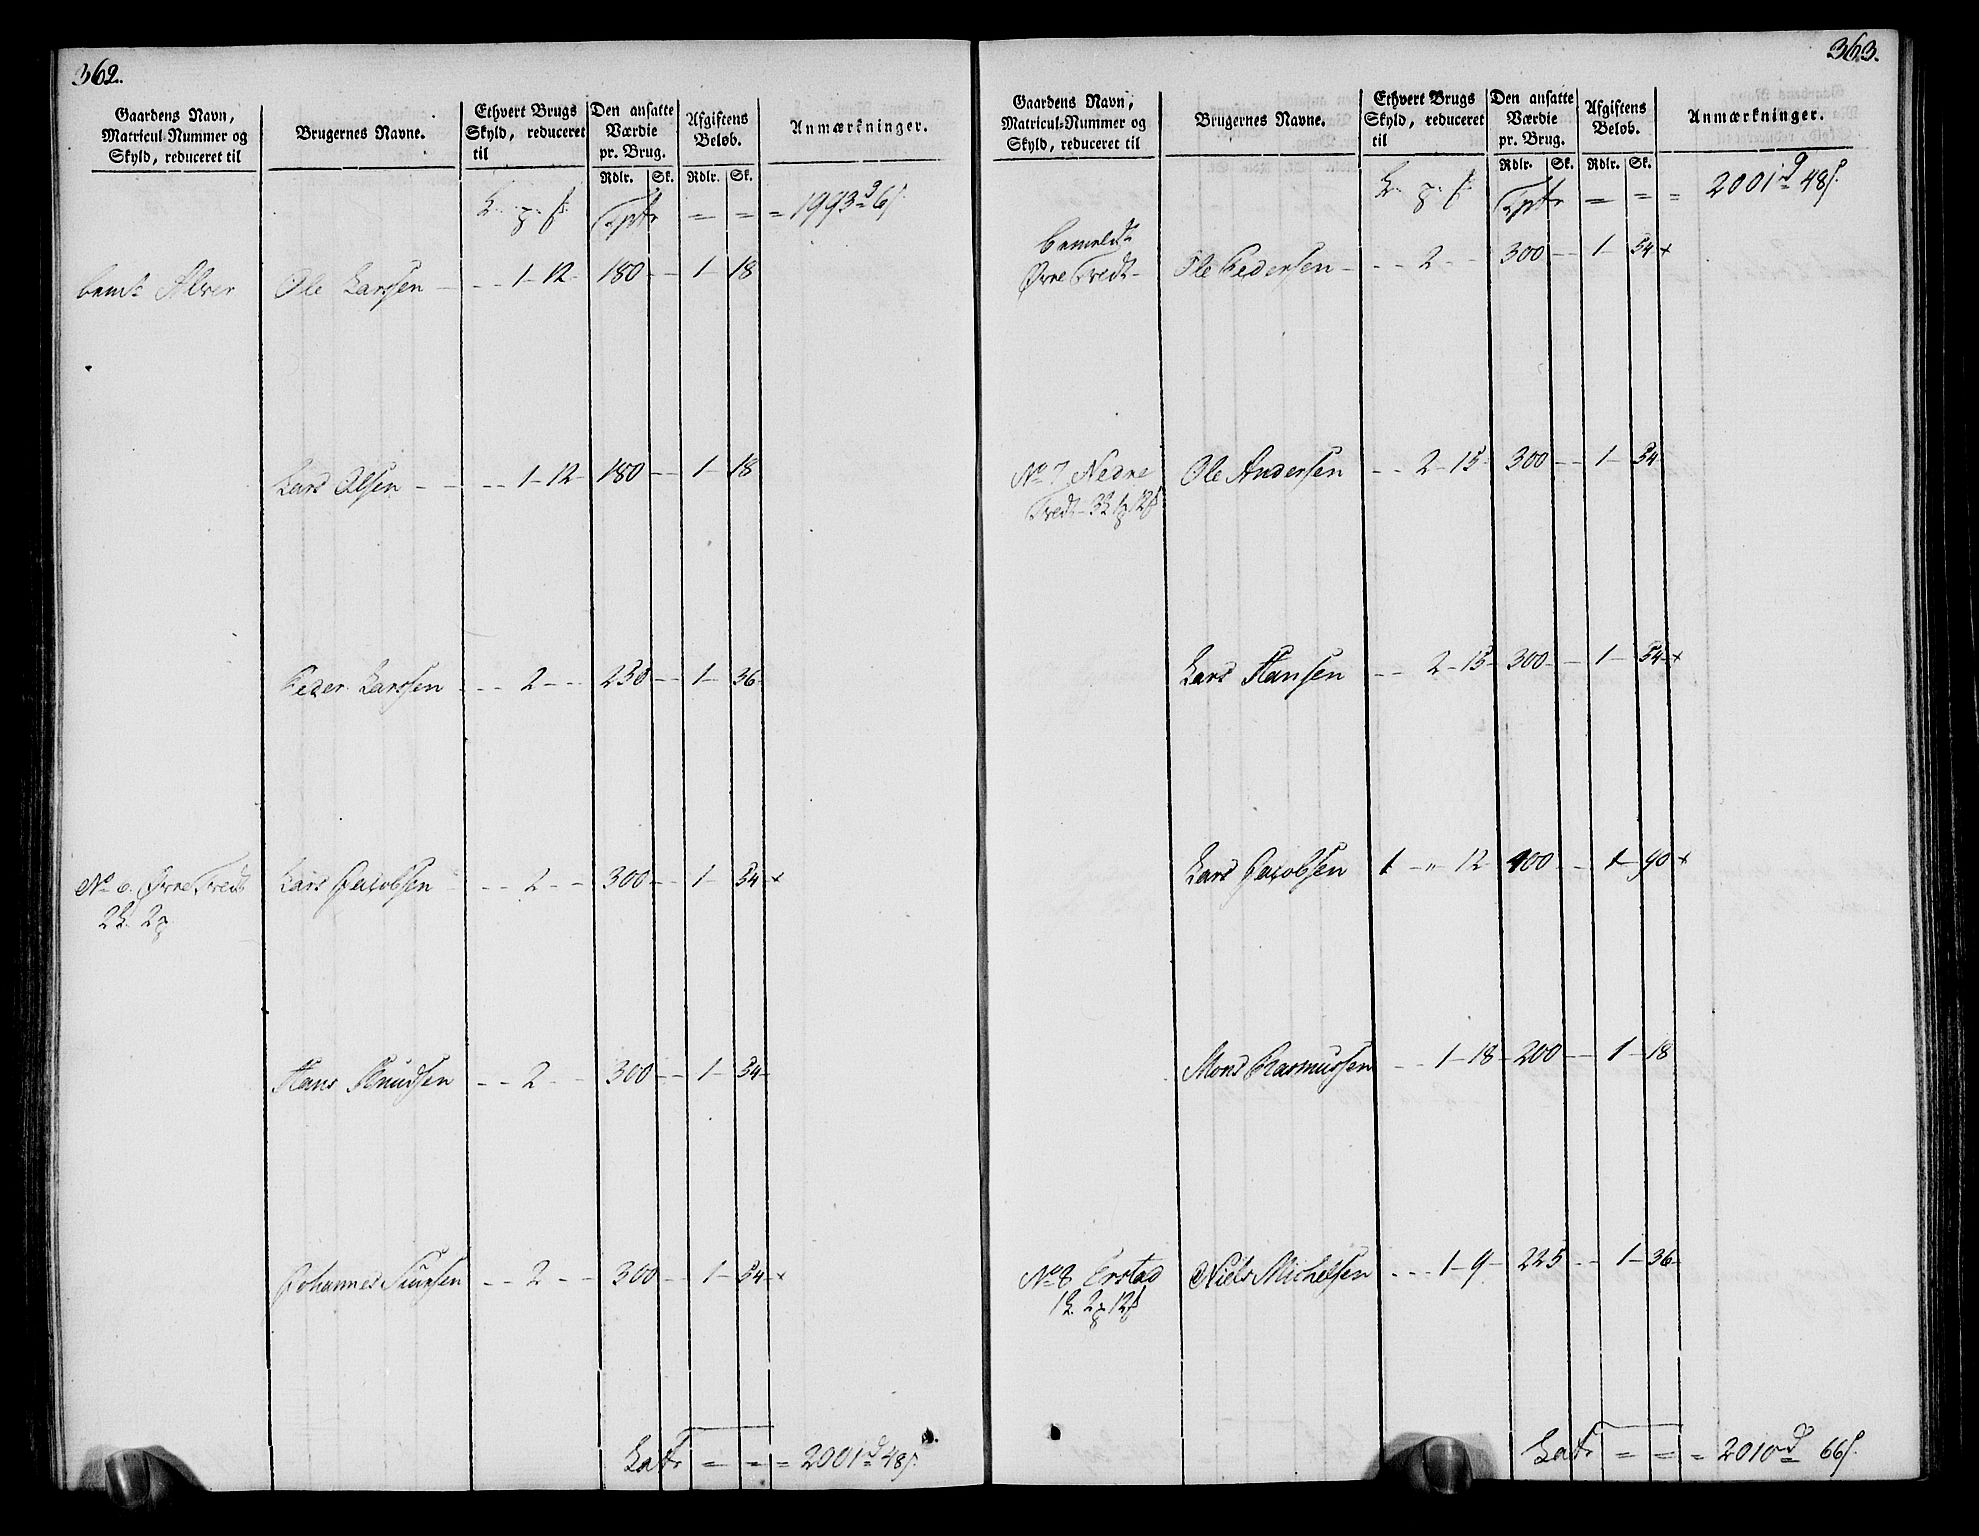 362.
Gaardens Navn, Matricul-Nummer og Skyld, reduceret til
Brugernes Navne.
Ethvert Brugs Skyld, reduceret til
Den ansatte Værdie pr. Brug.
Afgiftens Beløb.
Anmærkninger.
Rdlr. Sk. Rdlr. Sk.
Tptr = = = 1993 d 6 s.
bemte Alver Ole Larssen - - - 1-12- 180 - - 1- 18
Lars Olsen - - - - 1-12- 180 - - 1- 18
Peder Larssen - - - 2 - - 250 - - 1- 36-
No 6. Øvre Tvedt Lars Jacobsen - - - 2 - - 300 - - 1- 54 x
2 2
Hans Knudsen - - 2 - - 300 - - 1- 54-
Johannes - - 2 - - 300 - - 1- 54 x
Latr = = = 2001 d 48 s.
363.
Gaardens Navn, Matricul-Nummer og Skyld, reduceret til
Brugernes Navne.
Ethvert Brugs Skyld, reduceret til
Den ansatte Værdie pr. Brug.
Afgiftens Beløb.
Anmærkninger.
Rdlr. Sk. Rdlr. Sk.
Tptr = = = 2001 d 48 s.
bemeldte
Øvre Tvedt- Ole Pedersen - - - 2 - - 300 - - 1- 54 x
No 7 Nedre Ole Andersen - - 2-15 300 - - 1- 54
Tvedt- 3 1 12
Lars Hansen - - 2-15- 300 - - 1- 54 x
Lars Jacobsen 1 - " 12 400 - - 1- 90 x
Mons Rasmussen - - 1-18- 200 - - 1- 18
No 8 Erstad Niels Michelsen - - - 1-9- 225 - - 1- 36-
1 2 12
Latr = = = 2010 d 66 s.